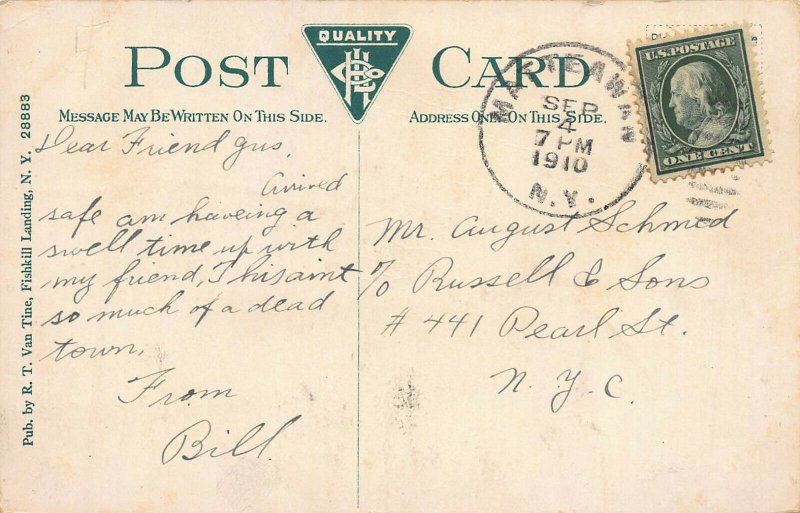 POST CARD
QUALITY
MESSAGE MAY BE WRITTEN ON THIS SIDE.
ADDRESS ONLY ON THIS SIDE.
Pub. by R. T. Van Tine, Fishkill Landing, N. Y. 28883
Dear Friend gus,
Arrived
safe am haveing a
swell time up with
my friend, This aint
so much of a dead
town,
From
Bill.
MATTEAWAN
SEP
4
7 PM
1910
N.Y.
U.S. POSTAGE
ONE CENT
Mr. August Schmed
c/o Russell & Sons
# 441 Pearl St.
N. Y. C.